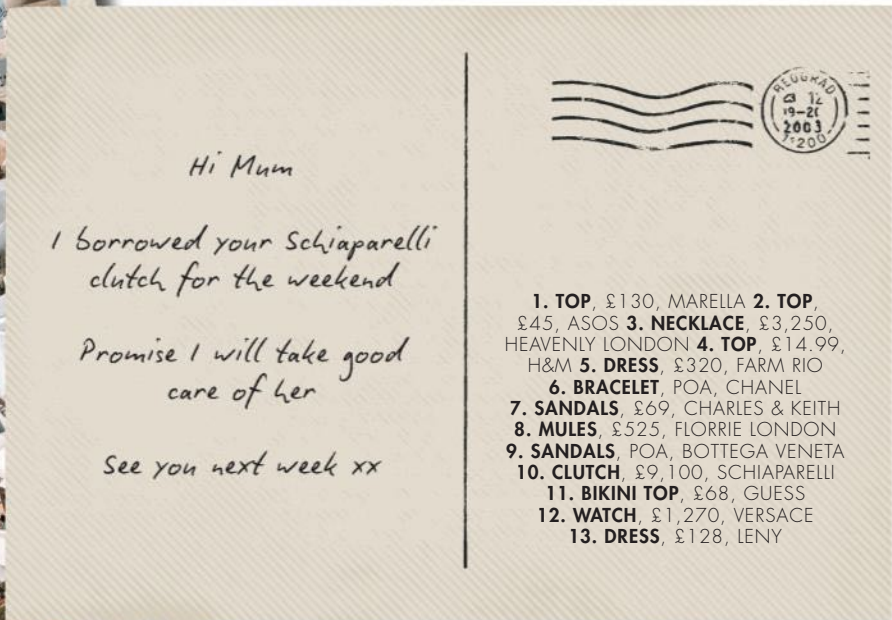 Hi Mum
I borrowed your Schiaparelli
clutch for the weekend
Promise I will take good
care of her
See you next week xx
12
2003
1. TOP, £130, MARELLA 2. TOP,
£45, ASOS 3. NECKLACE, £3,250,
HEAVENLY LONDON 4. TOP, £14.99,
H&M 5. DRESS, £320, FARM RIO
6. BRACELET, POA, CHANEL
7. SANDALS, £69, CHARLES & KEITH
8. MULES, £525, FLORRIE LONDON
9. SANDALS, POA, BOTTEGA VENETA
10. CLUTCH, £9,100, SCHIAPARELLI
11. BIKINI TOP, £68, GUESS
12. WATCH, £1,270, VERSACE
13. DRESS, £128, LENY